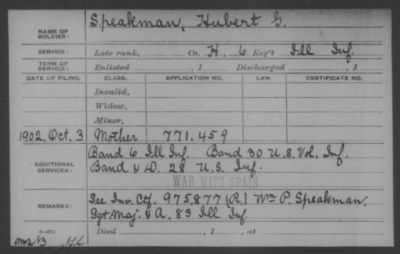 NAME OF SOLDIER: Speakman, Hubert G.
SERVICE: Late rank, Co. H, 6 Reg't Ill Inf.
TERM OF SERVICE: Enlisted , 1 Discharged , 1
DATE OF FILING. CLASS. APPLICATION NO. LAW. CERTIFICATE NO.
Invalid,
Widow,
Minor,
1902, Oct. 3 Mother 771.459
ADDITIONAL SERVICES: Band 6 Ill Inf. Band 30 U.S. Vol. Inf.
Band & D. 28 U.S. Inf.
WAR WITH SPAIN
REMARKS: See Inv. Ctf. 975877 (R.) Wm P. Speakman,
Sgt Maj. & A, 83 Ill Inf.
Died , 1 , at